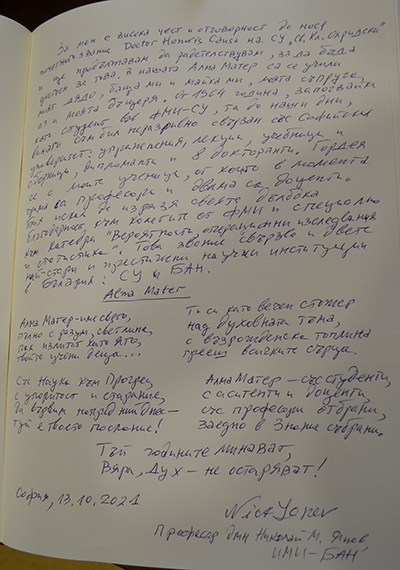 За мен е висока чест и отговорност да нося
почетното звание Doctor Honoris Causa на СУ „Св. Кл. Охридски"
и ще продължавам да работя, за да бъда
достоен за това. В нашата Алма Матер са се учили
моят дядо, баща ми и майка ми, моята съпруга,
аз и моята дъщеря. От 1964 година, започвайки
като студент във ФМИ-СУ, та до наши дни,
винаги съм бил неразривно свързан със Софийския
университет: упражнения, лекции, учебници и
сборници, дипломанти и 8 докторанти. Гордея
се с моите ученици, от които в момента
трима са професори и двама са доценти.
Бих искал да изразя своята дълбока
благодарност към колегите от ФМИ и специално
към катедра "Вероятности, операционни изследвания
и статистика". Това звание свързва и двете
най-стари и престижни научни институции
в България: СУ и БАН.
Alma Mater
Алма Матер - име свято,
пълно с разум, светлина,
пак излитат като ято,
твоите учени деца...
Със Наука към Прогрес,
с упоритост и старание,
да вървим напред ний днес -
туй е твоето послание!
Ти си като вечен стожер
над духовната тъма,
с възрожденска топлина
грееш всичките сърца.
Алма Матер - със студенти,
с асистенти и доценти,
със професори отбрани,
заедно в Знание събрани.
Тъй годините минават,
Вяра, Дух - не остаряват!
София, 13.10.2021
Nick Yanev
Професор дмн Николай М. Янев
ИМИ-БАН